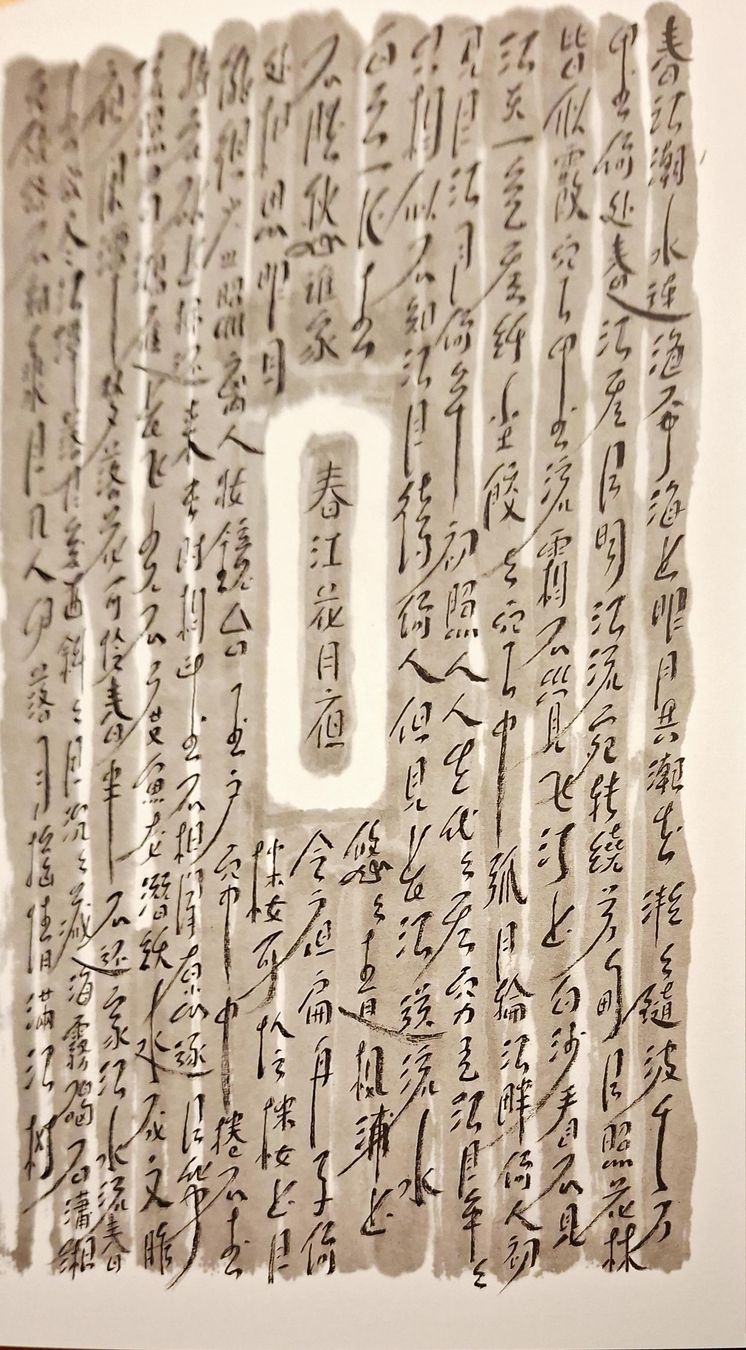 春江潮水連海平海上明月共潮生灩々隨波千万
里何处春江無月明江流宛轉繞芳甸月照花林
皆似霰空里流霜不覺飞汀上白沙看不見
江天一色無纖塵皎々空中孤月輪江畔何人初
見月江月何年初照人人生代々無窮已江月年々
只相似不知江月待何人但見長江送流水
白云一片去
悠々青楓浦上
不勝愁誰家
今夜扁舟子何
处相思明月
樓可怜樓上月
徘徊應照離人妝鏡台玉户帘中捲不去
擣衣砧上拂還來此时相望不相聞願逐月華
流照君鴻雁長飞光不度魚龙潛躍水成文昨
夜閒潭夢落花可怜春半不還家江水流春
去欲尽江潭落月復西斜々月沉々藏海霧碣石瀟湘
無限路不知乘月几人归落月摇情滿江树
春江花月夜